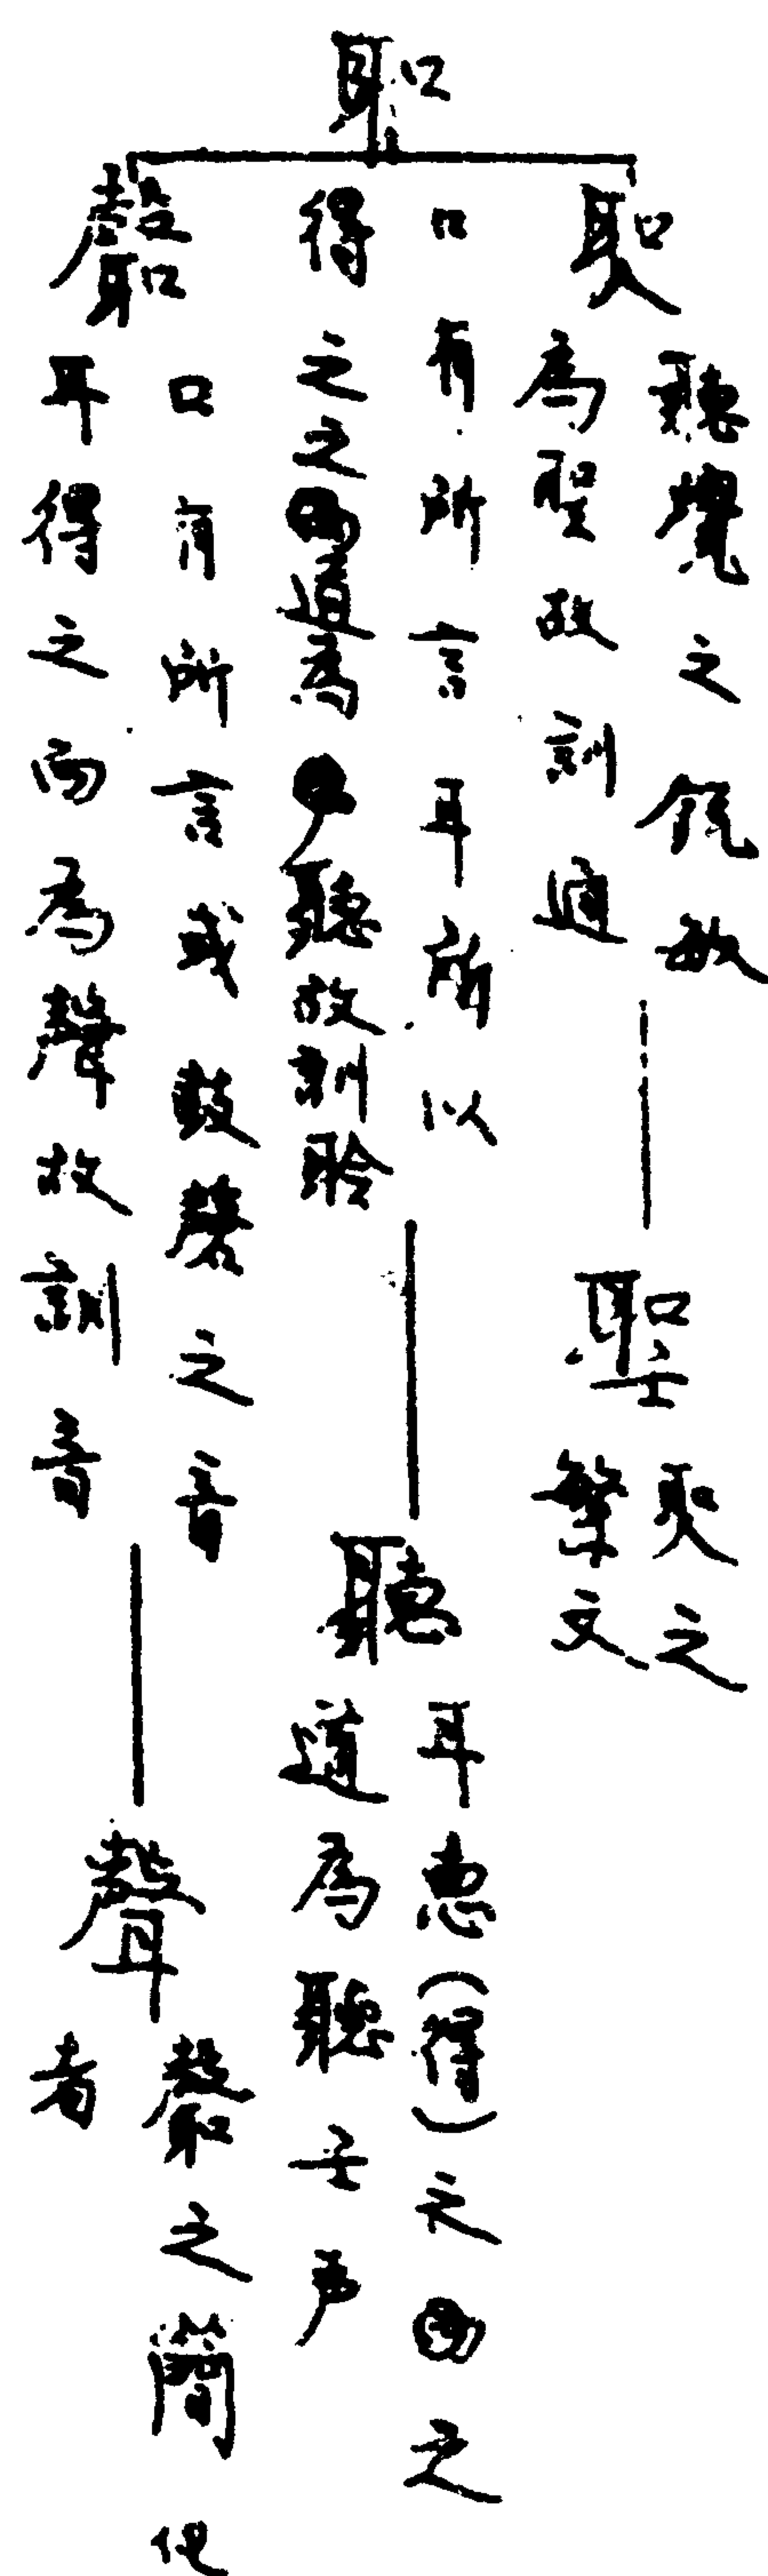 𦔻
聽覺之銳敏
為聖故訓通
聖
之
繁文
口有所言耳所以
得之之道為聽故訓聆
聽
耳惪(得)之之
道為聽壬声
口有所言或鼓磬之音
耳得之而為聲故訓音
聲
之簡化
者